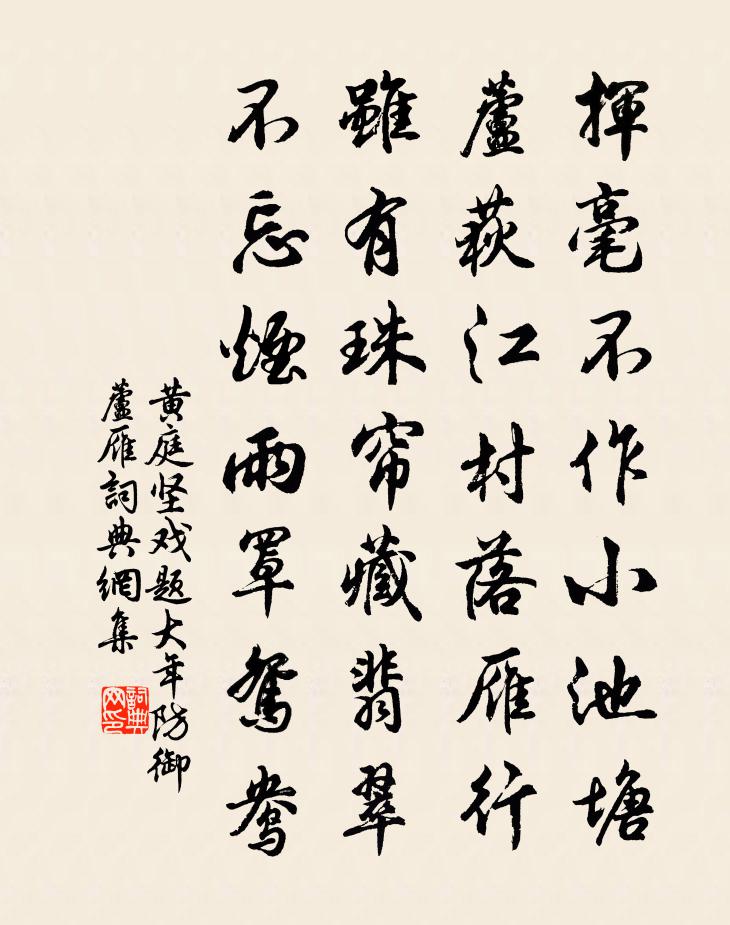 揮毫不作小池塘
蘆荻江村落雁行
雖有珠帘藏翡翠
不忘煙雨罩鴛鴦
黄庭坚戏题大年防御
蘆雁詞典網集
詞典网印